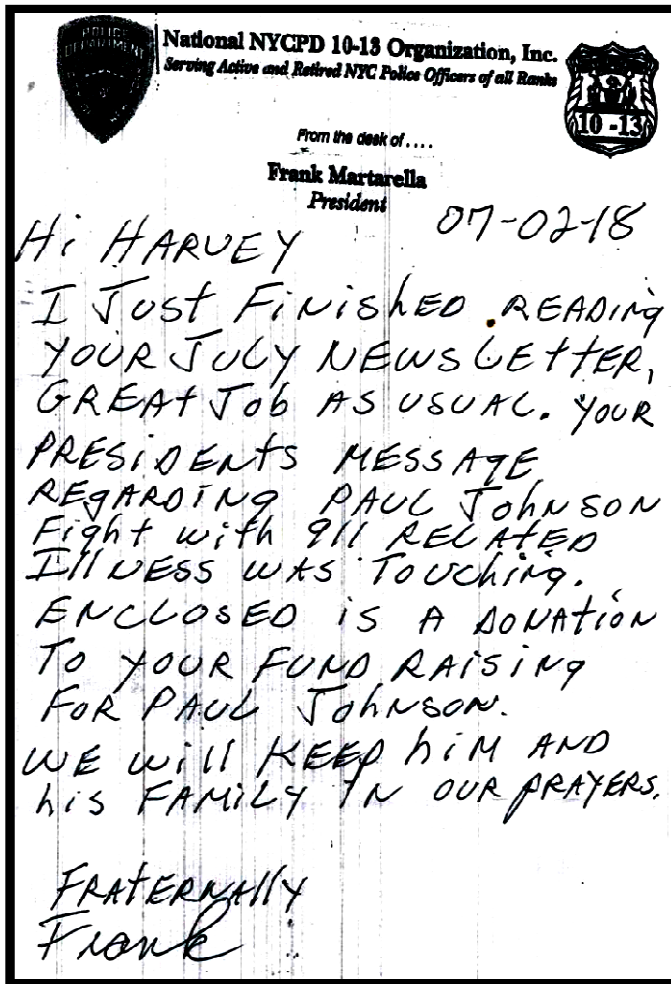 POLICE
DEPARTMENT
National NYCPD 10-13 Organization, Inc.
Serving Active and Retired NYC Police Officers of all Ranks
10-13
From the desk of . . . .
Frank Martarella
President
07-02-18
Hi HARVEY
I Just FiNisHED READiNg
YOUR JULY NEWSLETTER,
GREAt Job AS USUAL. YOUR
PRESiDENtS MESSAgE
REgARDiNg PAUL JohNSON
Fight with 911 RELATED
IllNESS WAS Touching.
ENCLOSED iS A DONAtiON
To YOUR FUND RAiSiNg
FOR PAUL JohNSON.
WE Will KEEP hiM AND
his FAMiLY IN OUR PRAYERS.
FRAtERNAllY
Frank